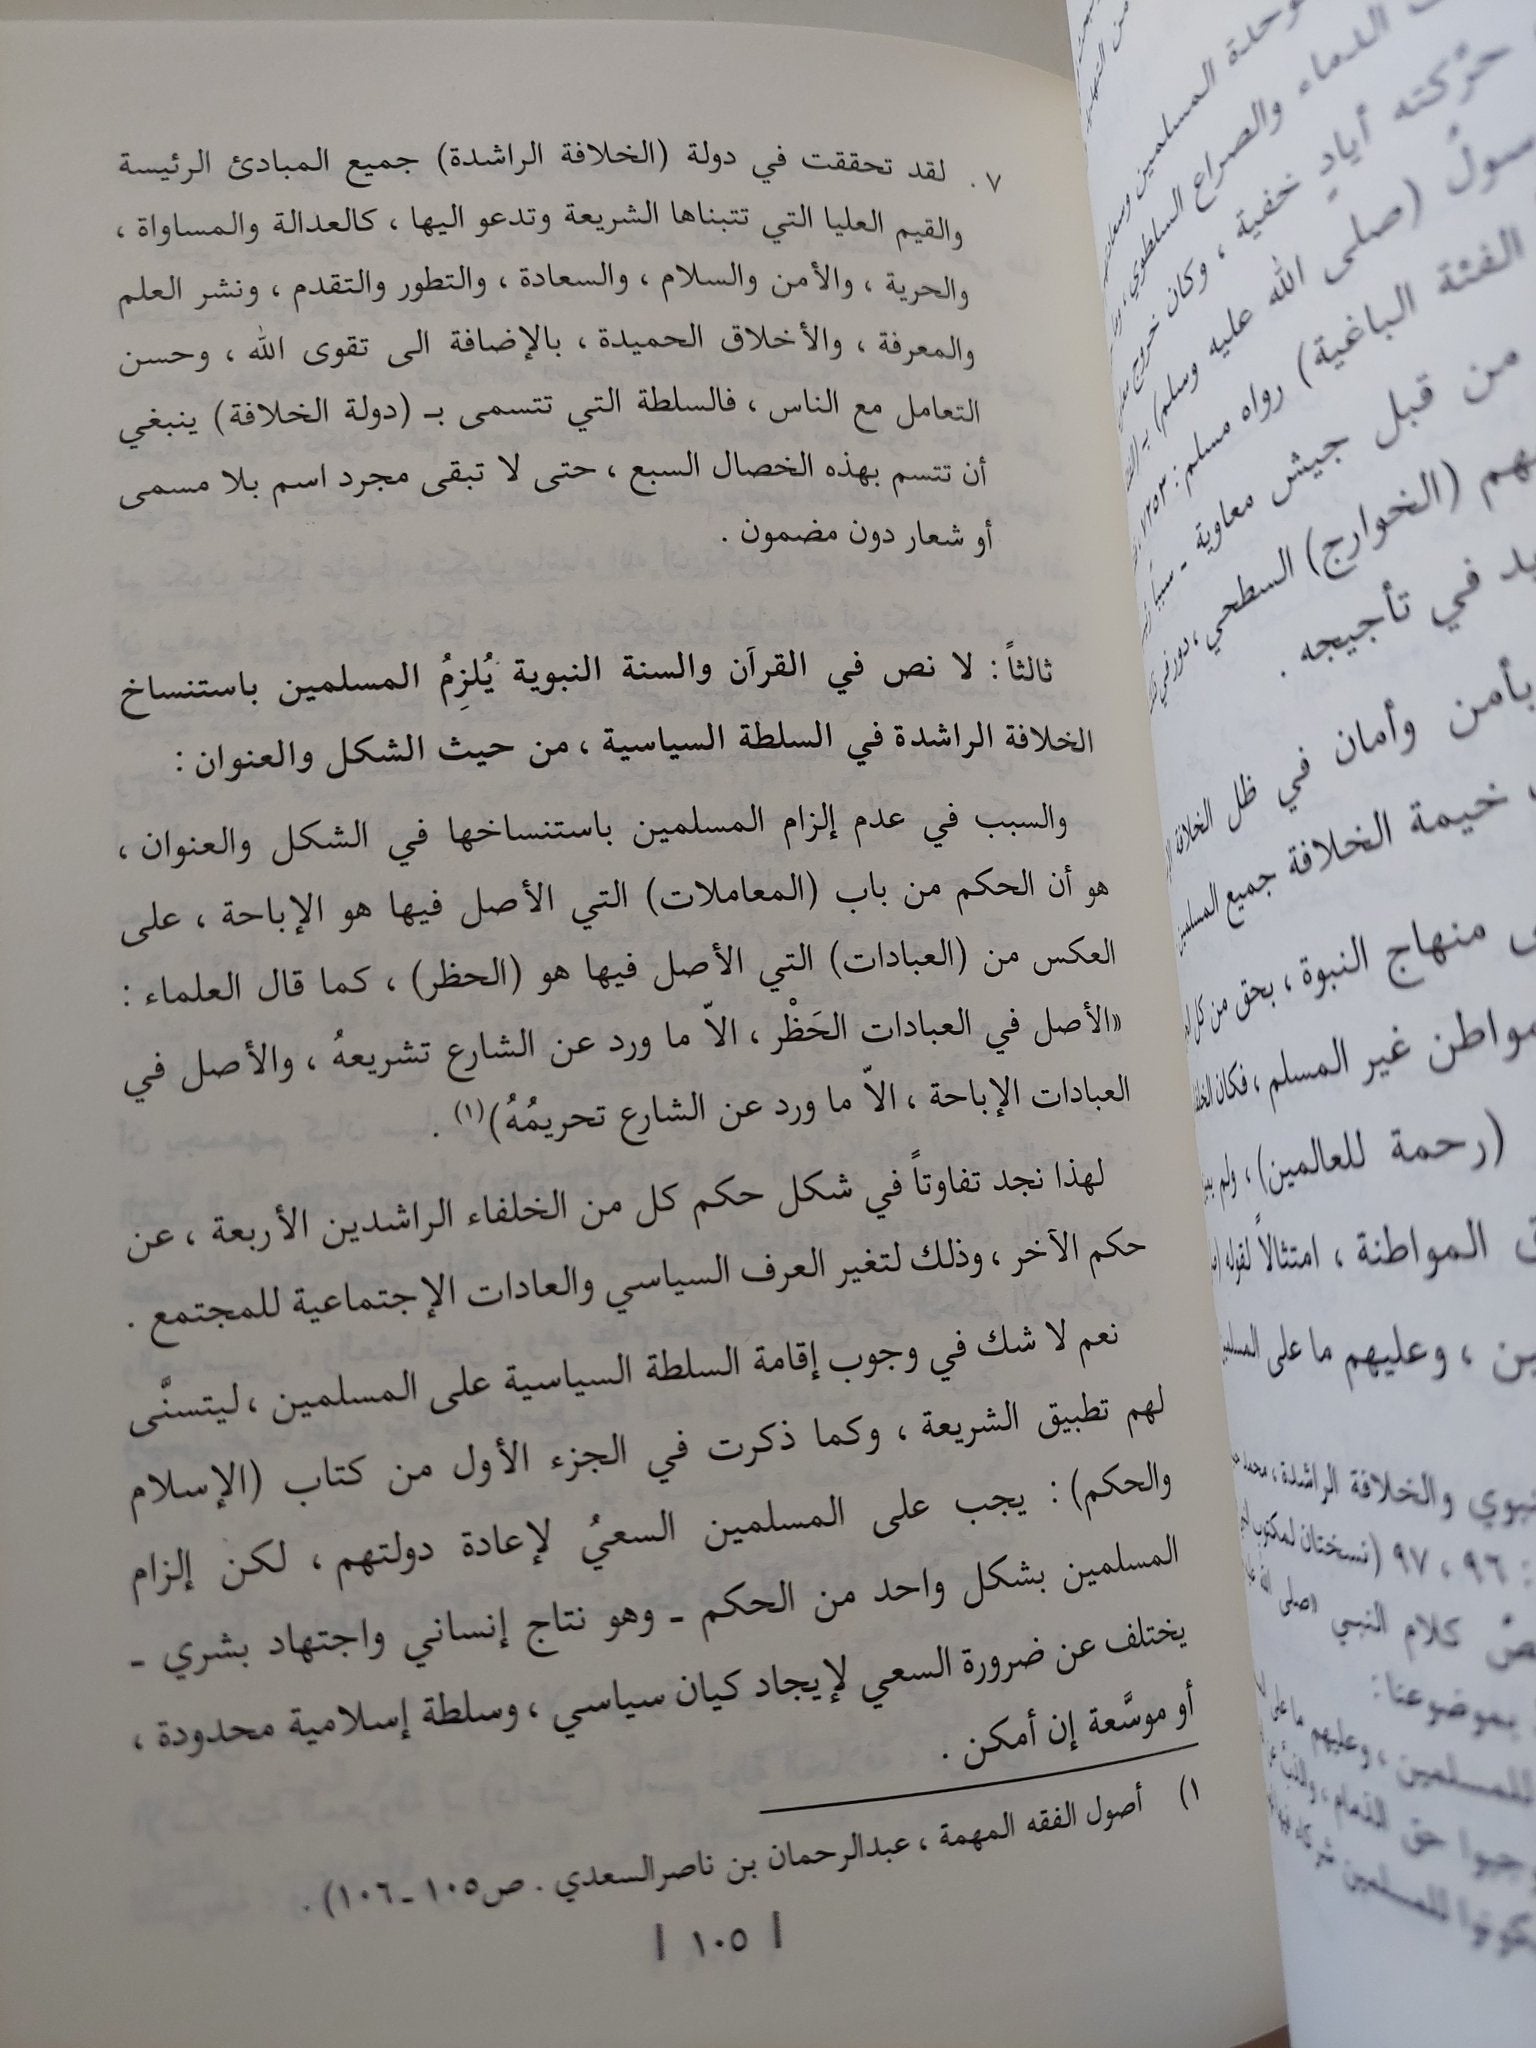 ٧. لقد تحققت في دولة (الخلافة الراشدة) جميع المبادئ الرئيسة
والقيم العليا التي تتبناها الشريعة وتدعو اليها ، كالعدالة والمساواة ،
والحرية ، والأمن والسلام ، والسعادة ، والتطور والتقدم ، ونشر العلم
والمعرفة ، والأخلاق الحميدة ، بالإضافة الى تقوى الله ، وحسن
التعامل مع الناس ، فالسلطة التي تتسمى بـ (دولة الخلافة) ينبغي
أن تتسم بهذه الخصال السبع ، حتى لا تبقى مجرد اسم بلا مسمى
أو شعار دون مضمون .
ثالثاً : لا نص في القرآن والسنة النبوية يُلزِمُ المسلمين باستنساخ
الخلافة الراشدة في السلطة السياسية ، من حيث الشكل والعنوان :
والسبب في عدم إلزام المسلمين باستنساخها في الشكل والعنوان ،
هو أن الحكم من باب (المعاملات) التي الأصل فيها هو الإباحة ، على
العكس من (العبادات) التي الأصل فيها هو (الحظر) ، كما قال العلماء :
«الأصل في العبادات الحَظْر ، الاّ ما ورد عن الشارع تشريعهُ ، والأصل في
العبادات الإباحة ، الاّ ما ورد عن الشارع تحريمُهُ)(١) .
لهذا نجد تفاوتاً في شكل حكم كل من الخلفاء الراشدين الأربعة ، عن
حكم الآخر ، وذلك لتغير العرف السياسي والعادات الإجتماعية للمجتمع .
نعم لا شك في وجوب إقامة السلطة السياسية على المسلمين ، ليتسنَّى
لهم تطبيق الشريعة ، وكما ذكرت في الجزء الأول من كتاب (الإسلام
والحكم) : يجب على المسلمين السعيُ لإعادة دولتهم ، لكن إلزام
المسلمين بشكل واحد من الحكم ـ وهو نتاج إنساني واجتهاد بشري ـ
يختلف عن ضرورة السعي لإيجاد كيان سياسي ، وسلطة إسلامية محدودة ،
أو موسَّعة إن أمكن .
١) أصول الفقه المهمة ، عبدالرحمان بن ناصرالسعدي . ص١٠٥ ـ ١٠٦) .
| ١٠٥ |
وحدة المسلمين
الدماء والصراع السلطوي ،
حرّكته أيادٍ خفية ، وكان خروج
(صلى الله عليه وسلم) بـ
الفئة الباغية) رواه مسلم : ٧٢٥٣
من قبل جيش معاوية ـ
(الخوارج) السطحي ، دور في
في تأجيجه .
بأمن وأمان في ظل الخلافة
خيمة الخلافة جميع المسلمين
منهاج النبوة ، بحق من كل
غير المسلم ، فكان
(رحمة للعالمين) ، ولم
المواطنة ، امتثالاً لقوله
، وعليهم ما على
والخلافة الراشدة ، محمد
: ٩٦ ، ٩٧ (نسختان
كلام النبي «صلى الله
بموضوعنا :
للمسلمين ، وعليهم ما على
حق الذمام ،
للمسلمين